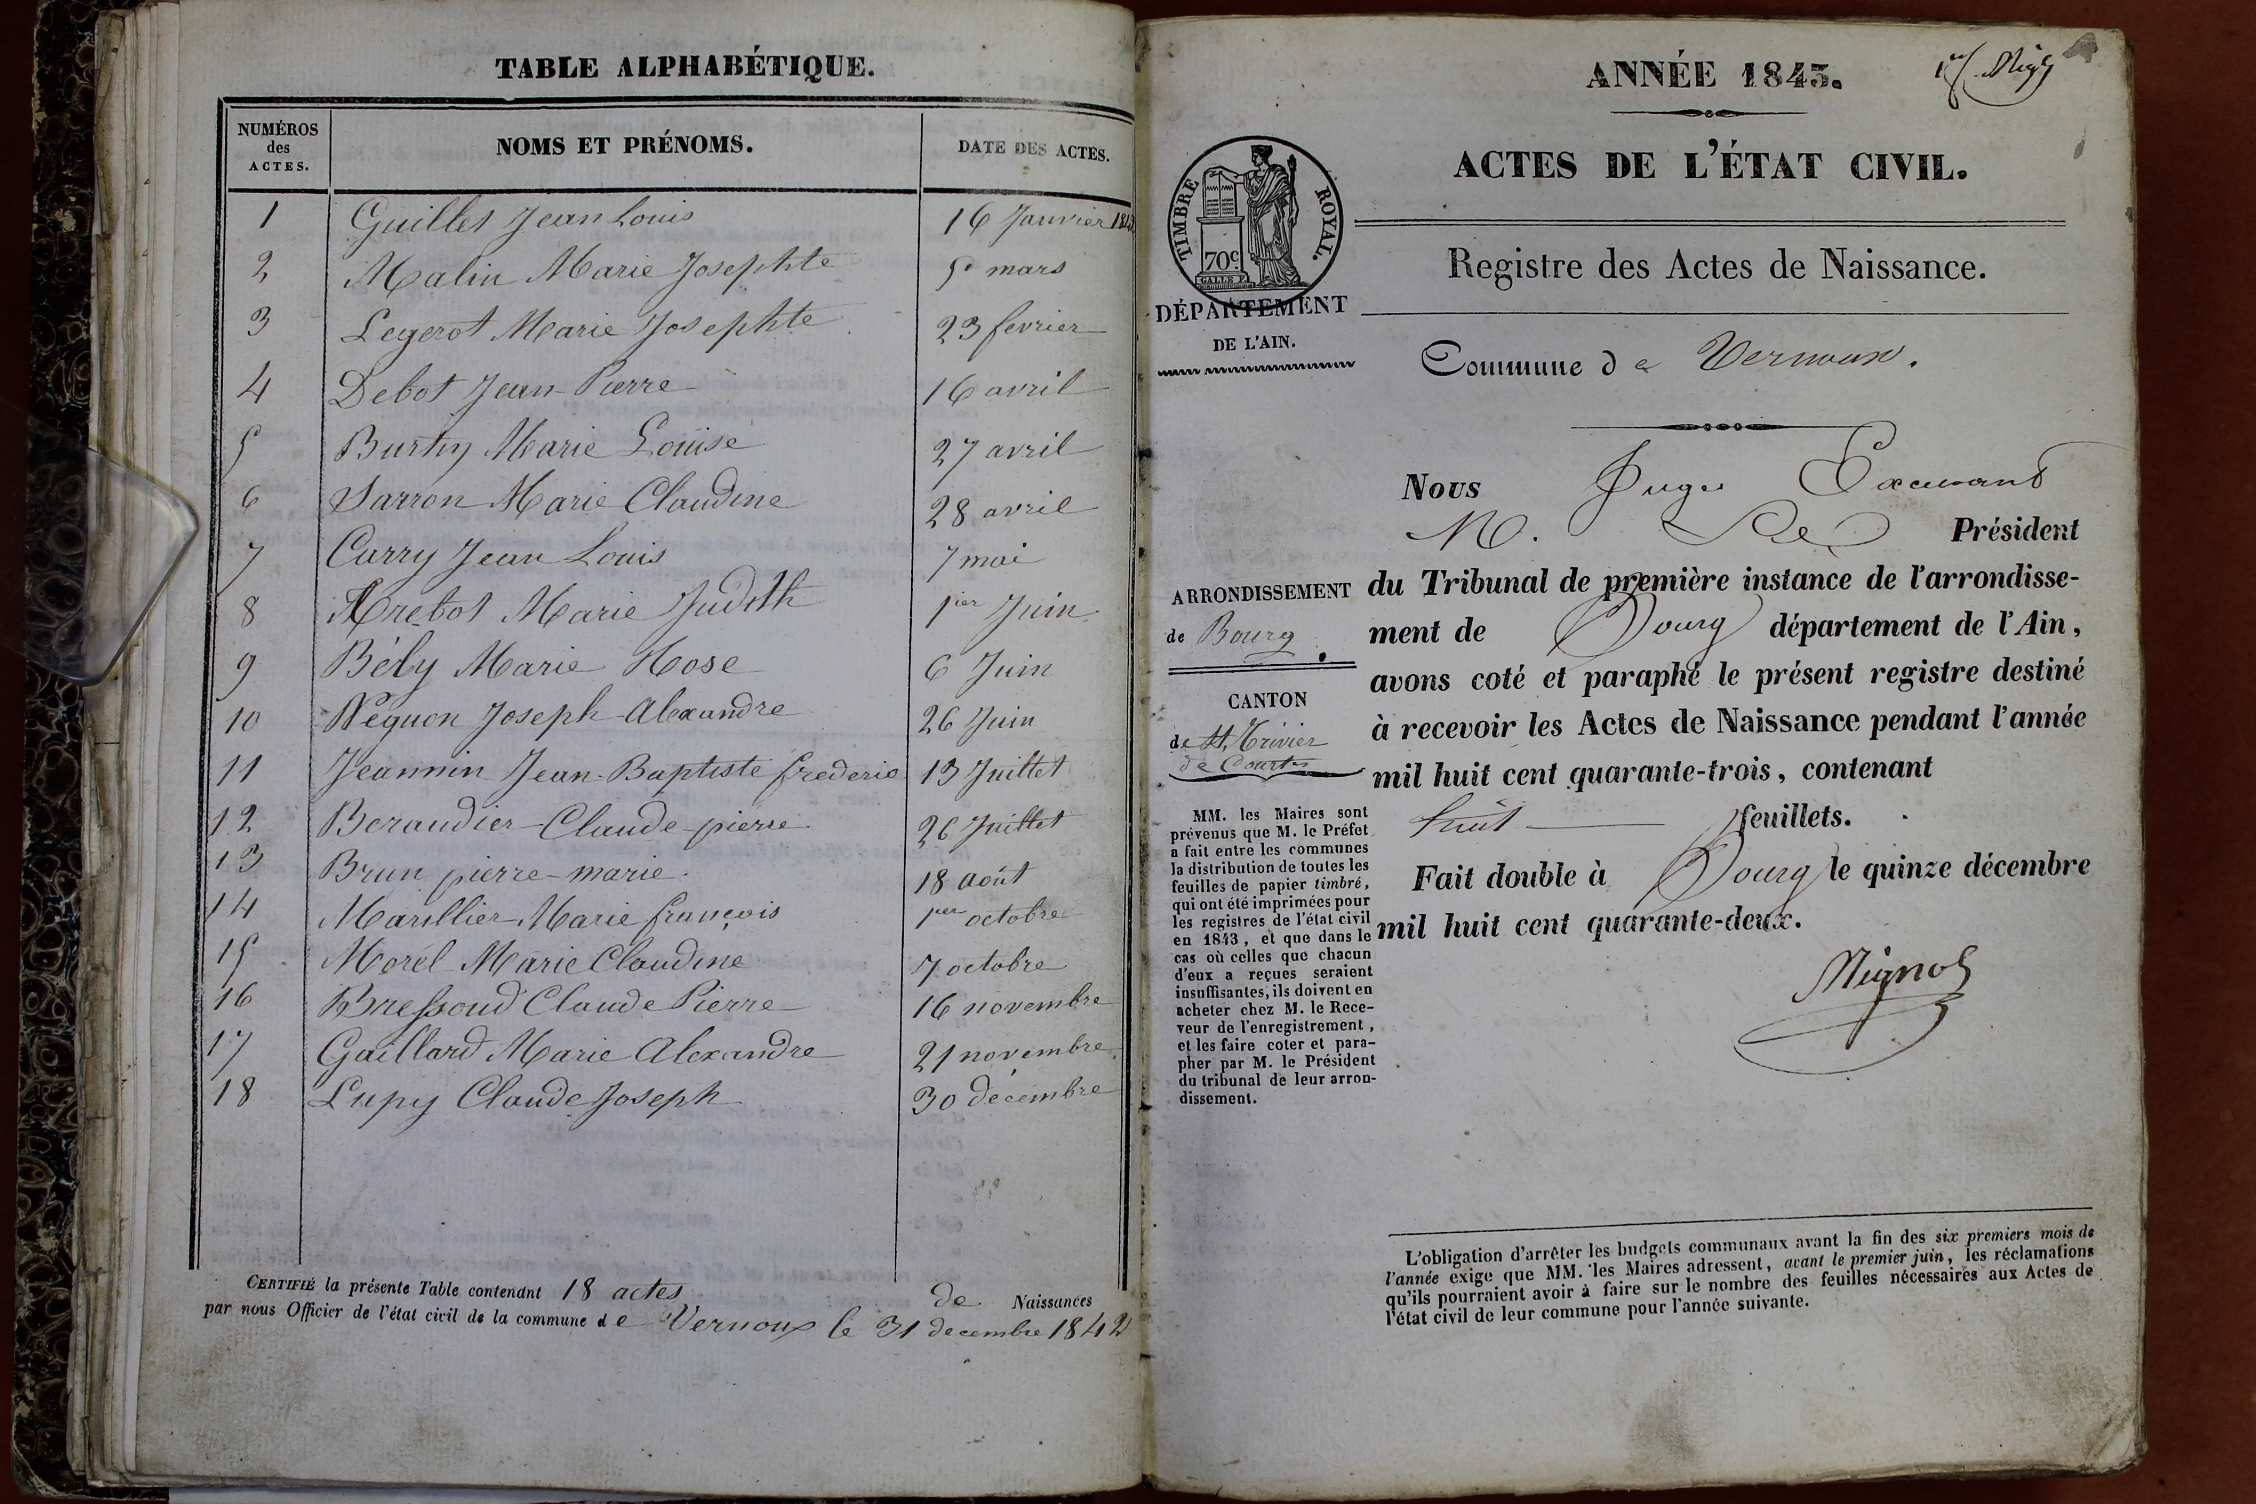 TABLE ALPHABÉTIQUE.
NUMÉROS des ACTES. NOMS ET PRÉNOMS. DATE DES ACTES.
1 Guillet Jean Louis 16 Janvier
2 Malin Marie Josephte 5 mars
3 Legerot Marie Josephte 23 fevrier
4 Debot Jean-Pierre 16 avril
5 Burthy Marie Louise 27 avril
6 Sarron Marie Claudine 28 avril
7 Carry Jean Louis 7 mai
8 Marie Judith 1ier Juin
9 Bély Marie Rose 6 Juin
10 Joseph Alexandre 26 Juin
11 Jeannin Jean-Baptiste frederic 13 Juillet
12 Beraudier Claude-pierre 26 Juillet
13 Brun pierre-marie 18 août
14 Marillier Marie françois 1er octobre
15 Morel Marie Claudine 7 octobre
16 Bressoud Claude Pierre 16 novembre
17 Gaillard Marie Alexandre 21 novembre
18 Lupy Claude Joseph 30 décembre
CERTIFIÉ la présente Table contenant 18 actes de Naissances
par nous Officier de l'état civil de la commune de Vernoux le 31 decembre 1842
ANNÉE 1843.
ACTES DE L'ÉTAT CIVIL.
TIMBRE ROYAL.
70c
Registre des Actes de Naissance.
DÉPARTEMENT
DE L'AIN.
Commune de Vernoux.
Nous Juge
M. Le Président
ARRONDISSEMENT
de Bourg
du Tribunal de première instance de l'arrondisse-
ment de Bourg département de l'Ain,
avons coté et paraphé le présent registre destiné
à recevoir les Actes de Naissance pendant l'année
mil huit cent quarante-trois, contenant
huit feuillets.
Fait double à Bourg le quinze décembre
mil huit cent quarante-deux.
Mignot
CANTON
de St Trivier
de Courtes
MM. les Maires sont
prévenus que M. le Préfet
a fait entre les communes
la distribution de toutes les
feuilles de papier timbré,
qui ont été imprimées pour
les registres de l'état civil
en 1843, et que dans le
cas où celles que chacun
d'eux a reçues seraient
insuffisantes, ils doivent en
acheter chez M. le Rece-
veur de l'enregistrement,
et les faire coter et para-
pher par M. le Président
du tribunal de leur arron-
dissement.
L'obligation d'arrêter les budgets communaux avant la fin des six premiers mois de
l'année exige que MM. les Maires adressent, avant le premier juin, les réclamations
qu'ils pourraient avoir à faire sur le nombre des feuilles nécessaires aux Actes de
l'état civil de leur commune pour l'année suivante.